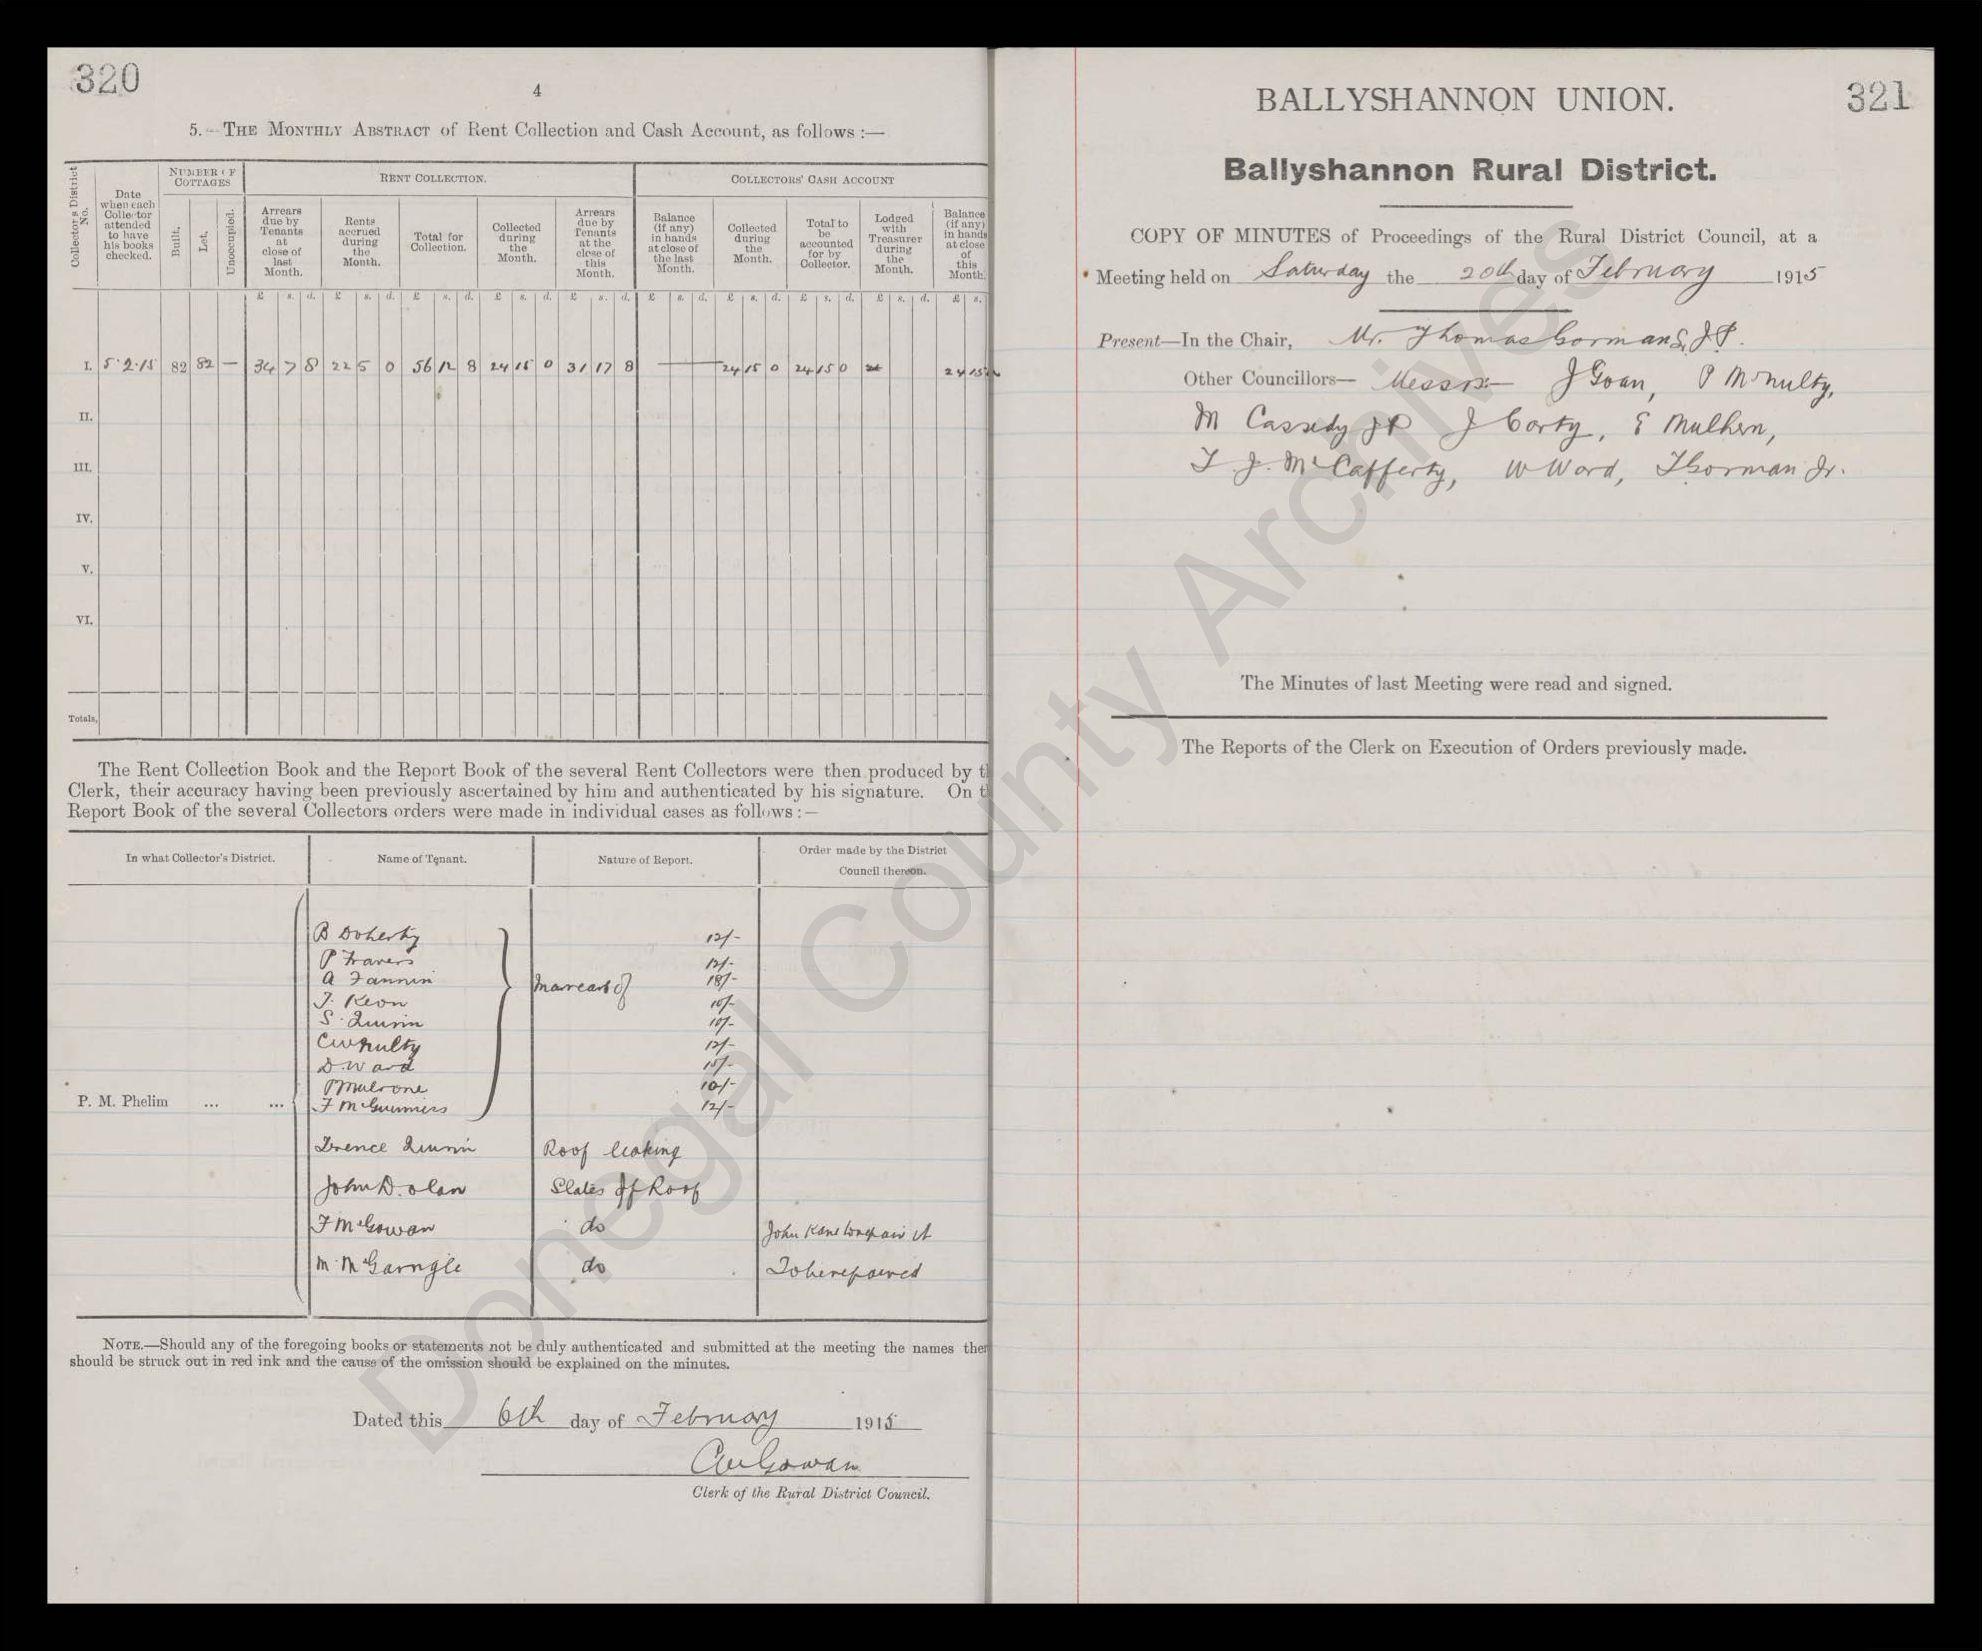 320
4
5.— THE MONTHLY ABSTRACT of Rent Collection and Cash Account, as follows :—
Collector's District No.
Date when each Collector attended to have his books checked.
NUMBER OF COTTAGES
Built.
Let.
Unoccupied.
RENT COLLECTION.
Arrears due by Tenants at close of last Month.
Rents accrued during the Month.
Total for Collection.
Collected during the Month.
Arrears due by Tenants at the close of this Month.
COLLECTORS' CASH ACCOUNT
Balance (if any) in hands at close of the last Month.
Collected during the Month.
Total to be accounted for by Collector.
Lodged with Treasurer during the Month.
Balance (if any) in hands at close of this Month.
£ s. d. £ s. d. £ s. d. £ s. d. £ s. d. £ s. d. £ s. d. £ s. d. £ s. d. £ s.
I. 5.2.15 82 82 — 34 7 8 22 5 0 56 12 8 24 15 0 31 17 8 — 24 15 0 24 15 0 24 15
II.
III.
IV.
V.
VI.
Totals,
The Rent Collection Book and the Report Book of the several Rent Collectors were then produced by t
Clerk, their accuracy having been previously ascertained by him and authenticated by his signature. On t
Report Book of the several Collectors orders were made in individual cases as follows :—
In what Collector's District. Name of Tenant. Nature of Report. Order made by the District Council thereon.
B Doherty 12/-
P Travers 12/-
A Fannin In arrears of 18/-
T. Keon 10/-
S. Quinn 10/-
C McNulty 12/-
D. Ward 15/-
P Mulrone 10/-
P. M. Phelim ... ... F McGuinness 12/-
Terence Quinn Roof leaking
John Dolan Slates off Roof
F McGowan do John Kane to repair it
M. McGarrigle do To be repaired
NOTE.—Should any of the foregoing books or statements not be duly authenticated and submitted at the meeting the names ther
should be struck out in red ink and the cause of the omission should be explained on the minutes.
Dated this 6th day of February 1915
C McGowan
Clerk of the Rural District Council.
321
BALLYSHANNON UNION.
Ballyshannon Rural District.
COPY OF MINUTES of Proceedings of the Rural District Council, at a
Meeting held on Saturday the 20th day of February 1915
Present—In the Chair, Mr. Thomas Gorman S, J.P.
Other Councillors— Messrs:— J Goan, P McNulty,
M Cassidy JP J Corty, E Mulhern,
T. J. McCafferty, W Ward, T Gorman Jr.
The Minutes of last Meeting were read and signed.
The Reports of the Clerk on Execution of Orders previously made.
Donegal County Archives